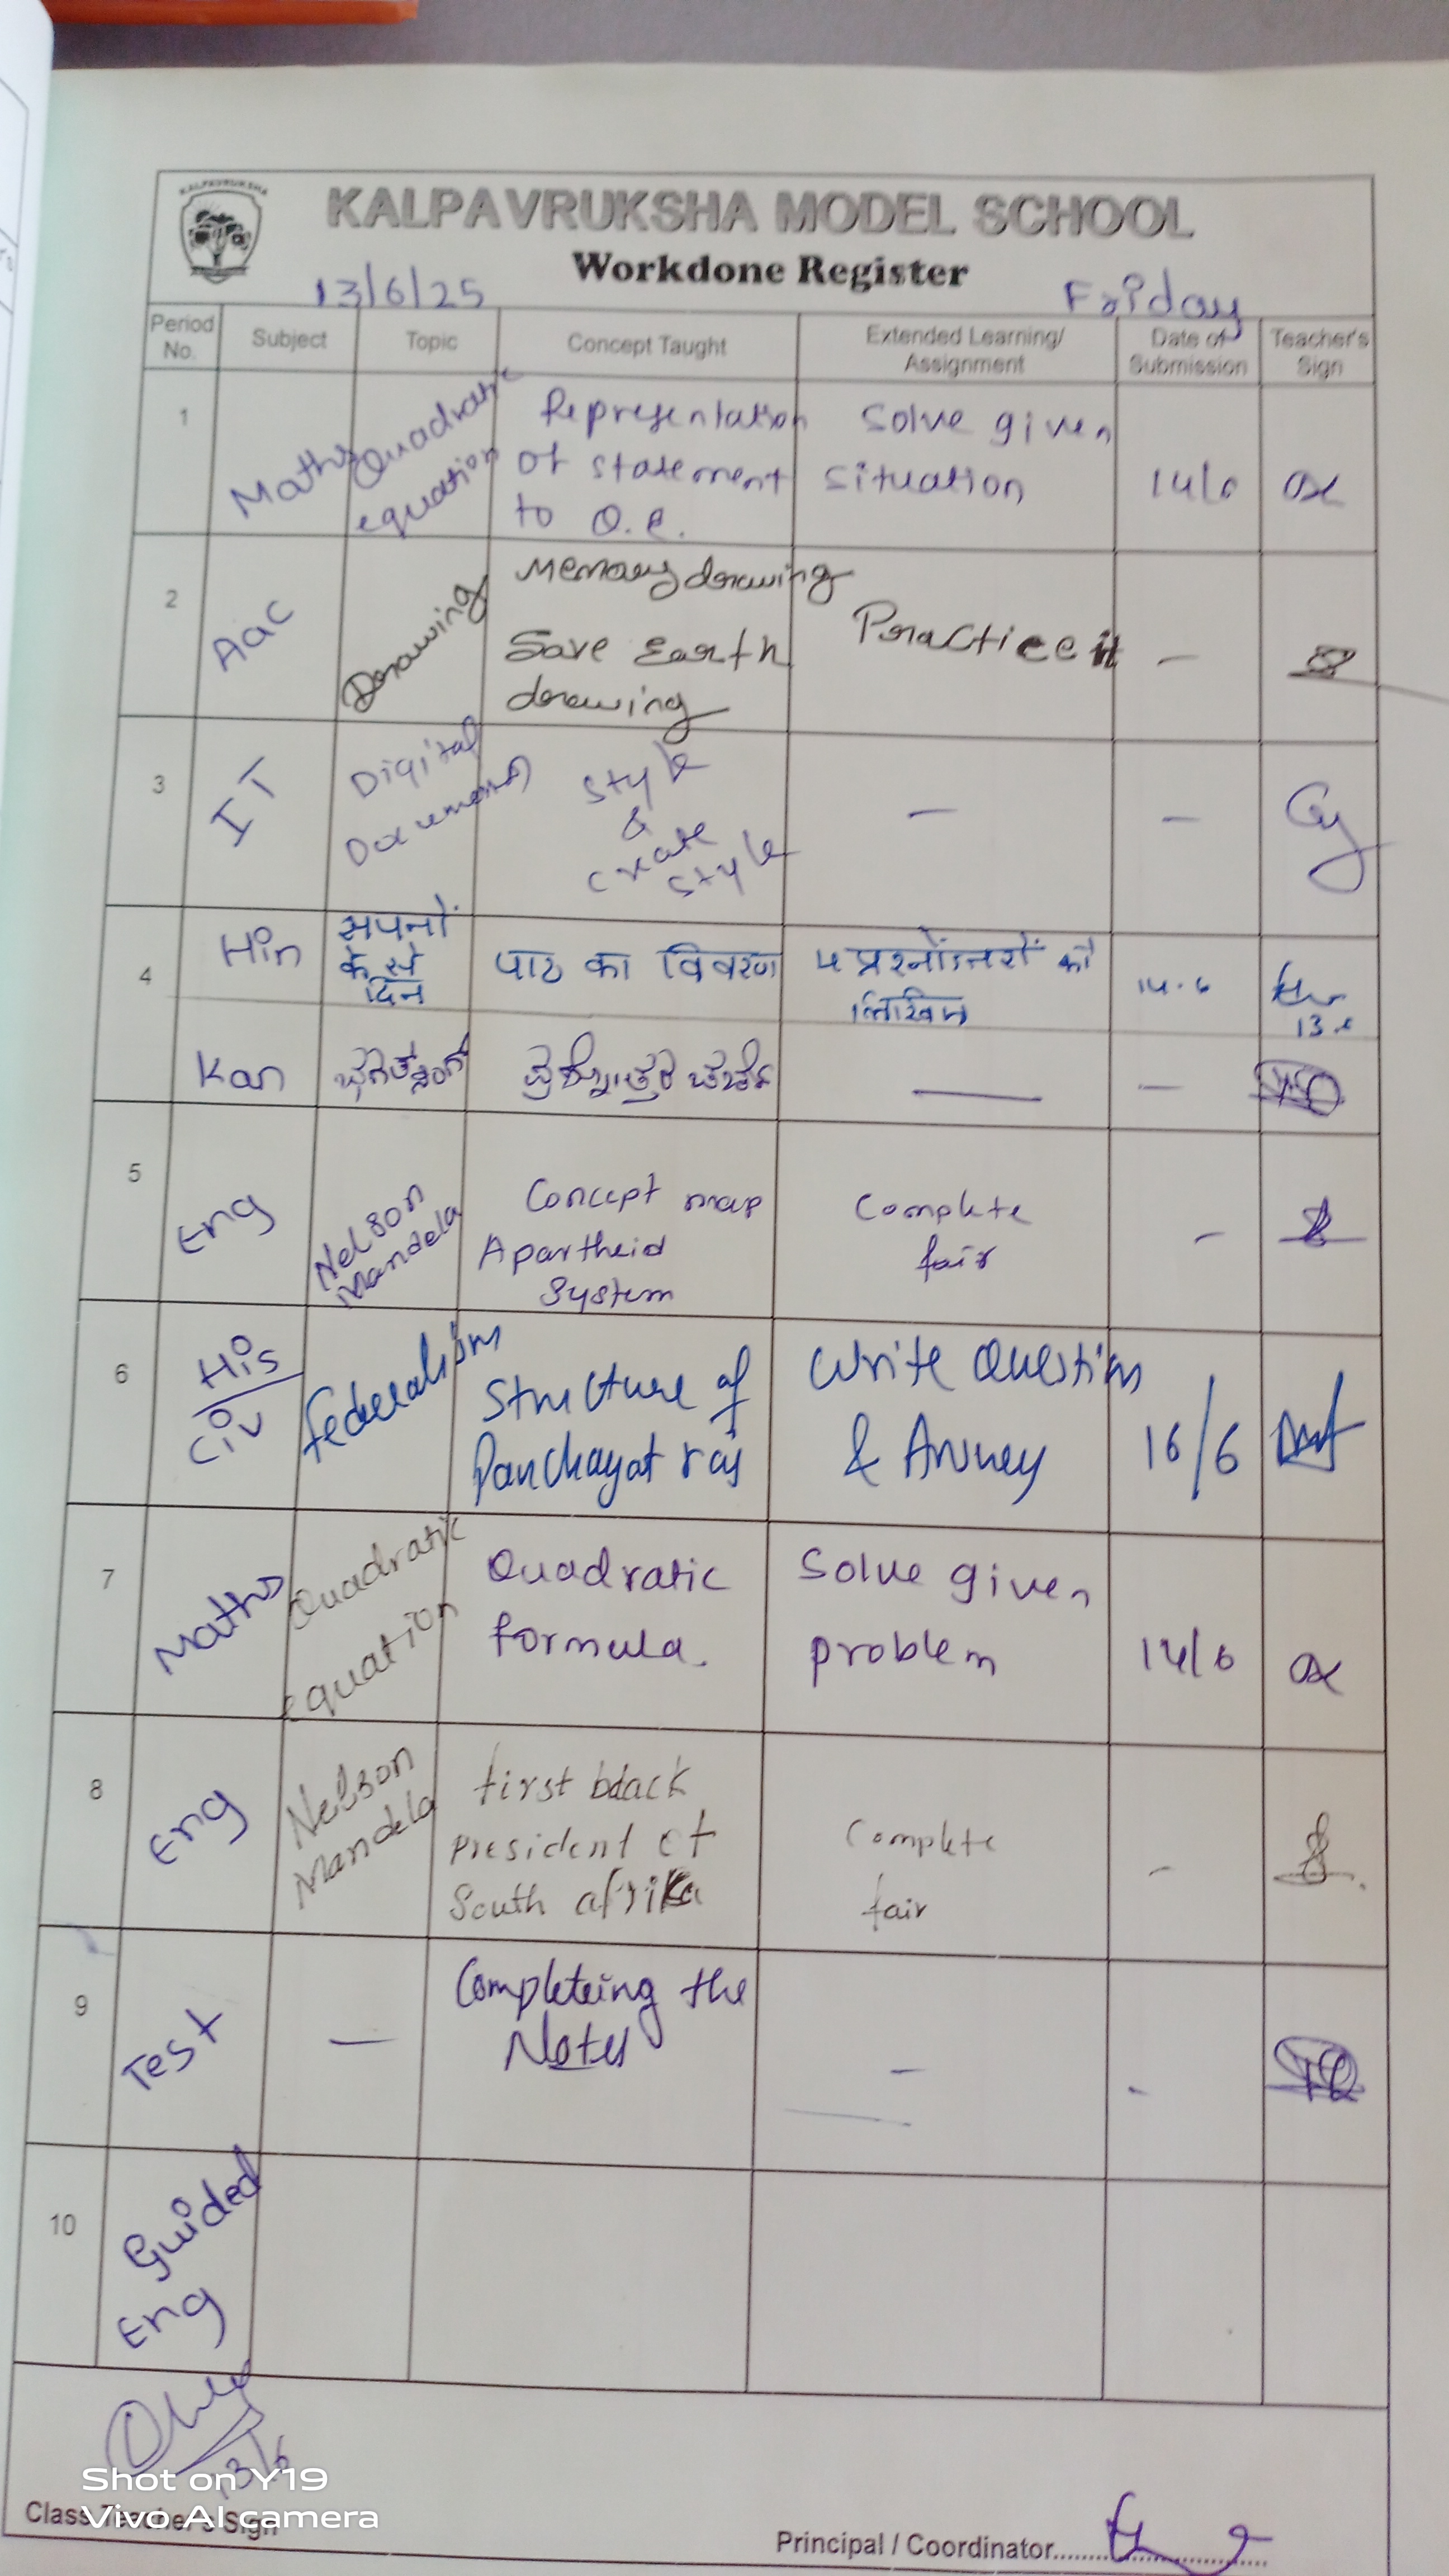 KALPAVRUKSHA
KALPAVRUKSHA MODEL SCHOOL
Workdone Register
13/6/25 Friday
Period No. Subject Topic Concept Taught Extended Learning/ Assignment Date of Submission Teacher's Sign
1 Maths Quadratic equation Representation of statement to Q.E. Solve given situation 14/6
2 Aac Drawing Memory drawing Save Earth drawing Practice it -
3 IT Digital Style & create style - -
4 Hin सपनों के से दिन पाठ का विवरण को 14.6
Kan — —
5 Eng Nelson Mandela Concept map Apartheid System Complete fair -
6 His Civ Federalism Structure of Panchayat raj Write Question & 16/6
7 Maths Quadratic equation Quadratic formula. Solve given problem 14/6
8 Eng Nelson Mandela first black President of South afrika Complete fair -
9 Test — Completeing the Notes - -
10 Guided Eng
13/6
Shot on Y19
Vivo AI camera
Class Teacher's Sign
Principal / Coordinator